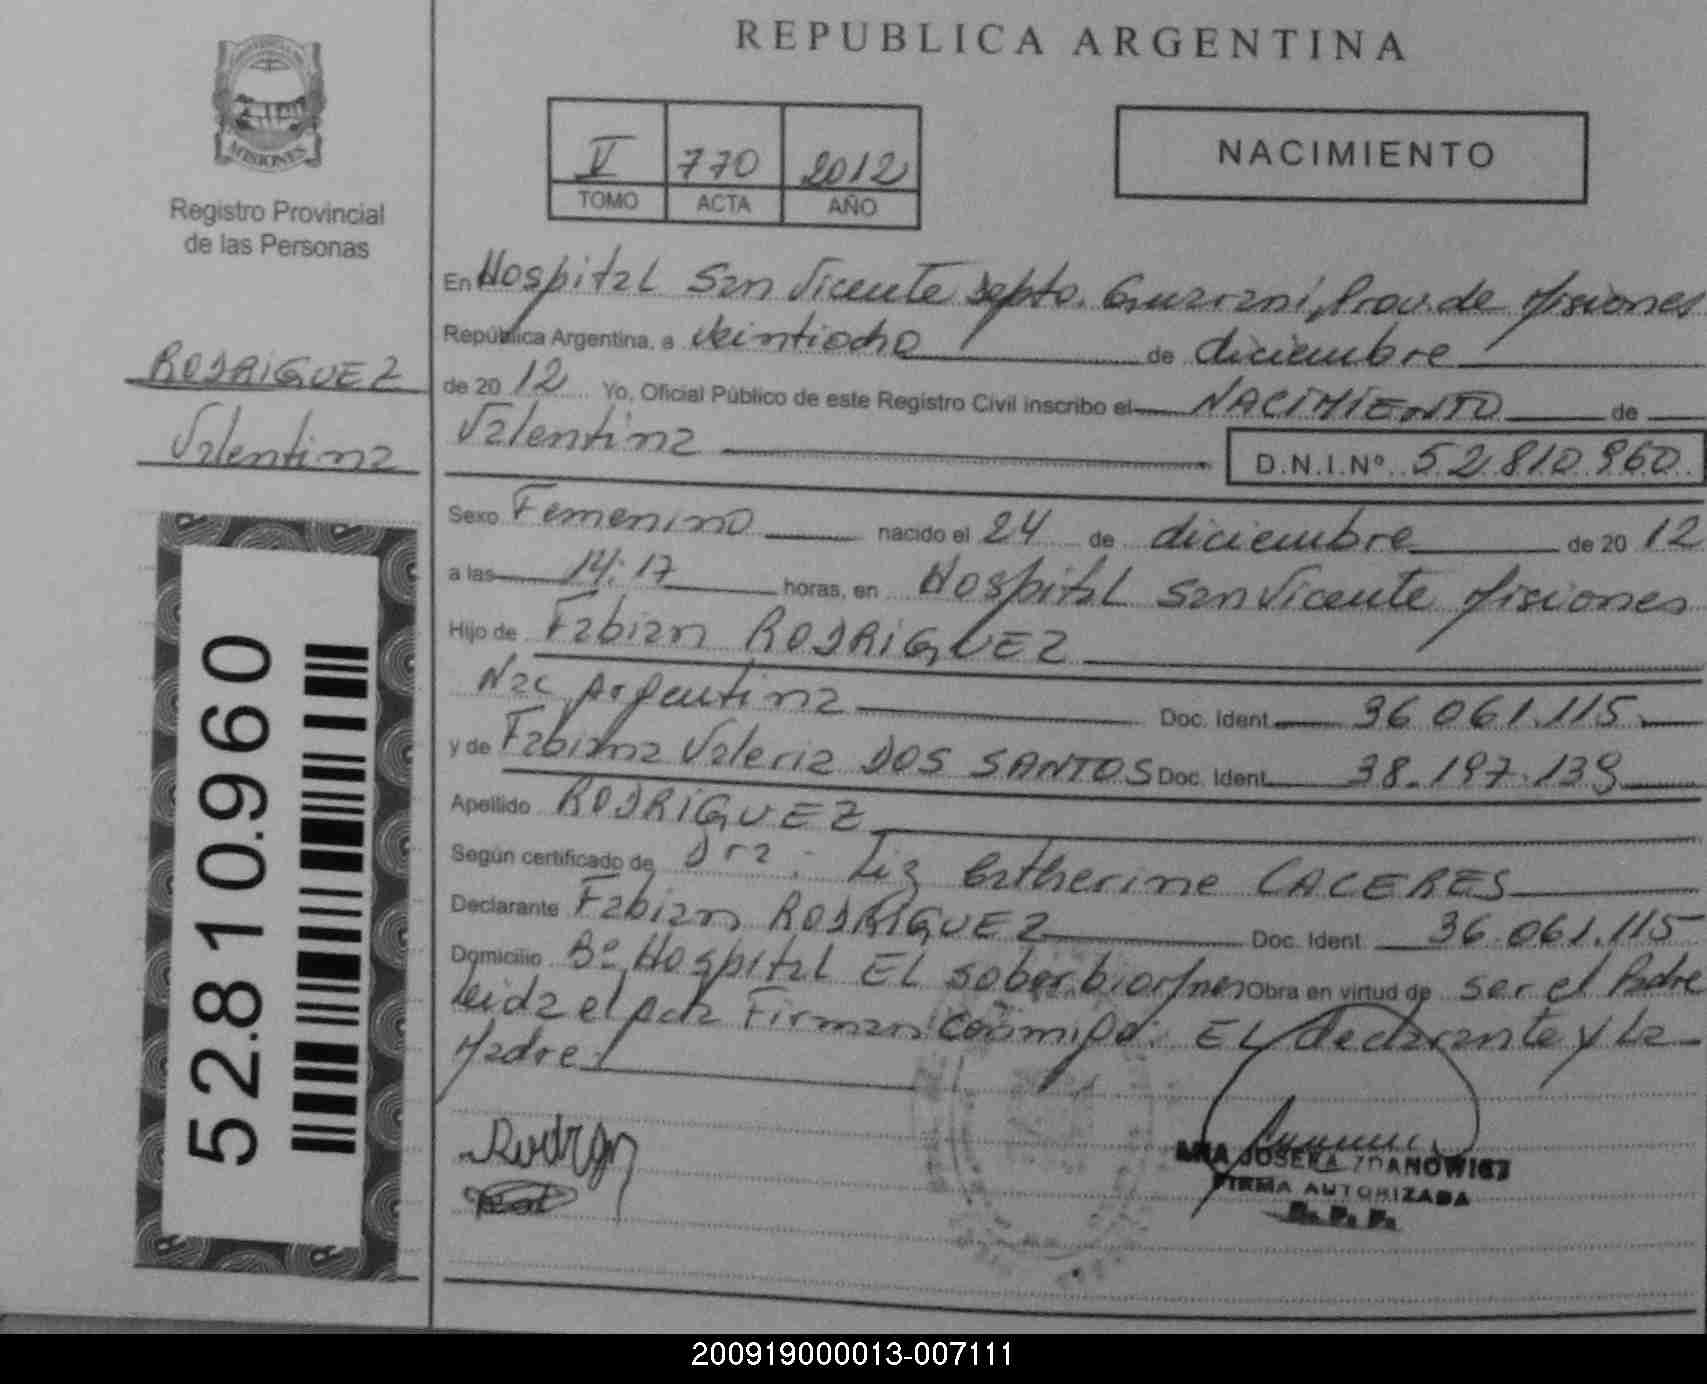 REPUBLICA ARGENTINA
MISIONES
Registro Provincial
de las Personas
RODRIGUEZ
Valentina
52.810.960
V 770 2012
TOMO ACTA AÑO
NACIMIENTO
En Hospital San Vicente Depto. Guarani, Prov. de Misiones
República Argentina, a veintiocho de diciembre
de 20 12 Yo, Oficial Público de este Registro Civil inscribo el NACIMIENTO de
Valentina D.N.I.Nº 52.810.960
Sexo Femenino nacido el 24 de diciembre de 20 12
a las 14:17 horas, en Hospital San Vicente Misiones
Hijo de Fabian RODRIGUEZ
Nac Argentina Doc. Ident. 36.061.115
y de Fabiana Valeria DOS SANTOS Doc. Ident. 38.197.139
Apellido RODRIGUEZ
Según certificado de Dra. Liz Catherine CACERES
Declarante Fabian RODRIGUEZ Doc. Ident. 36.061.115
Domicilio Bº Hospital EL Soberbio Mnes Obra en virtud de ser el Padre
Leida el acta Firman conmigo: EL declarante y La
Madre
ANA JOSEFA ZDANOWICZ
FIRMA AUTORIZADA
R. P. P.
200919000013-007111